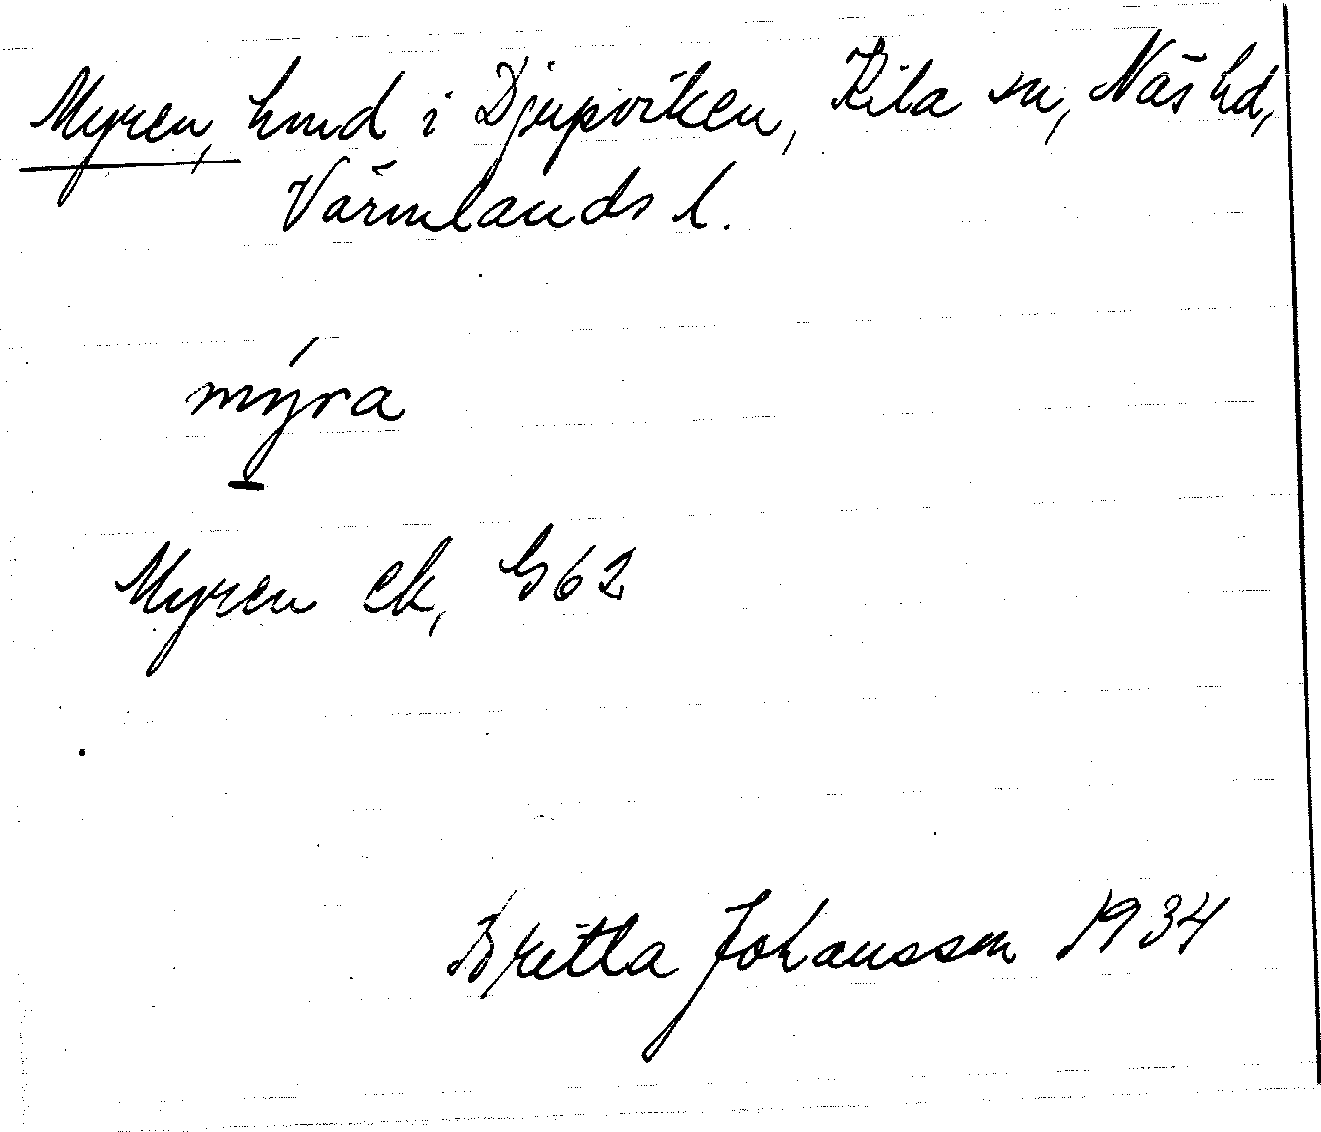 Myren, hmd i Djupviken, Kila sn, Näs hd,
Värmlands l.
mýra
Myren ek, G62
Britta Johansson 1934